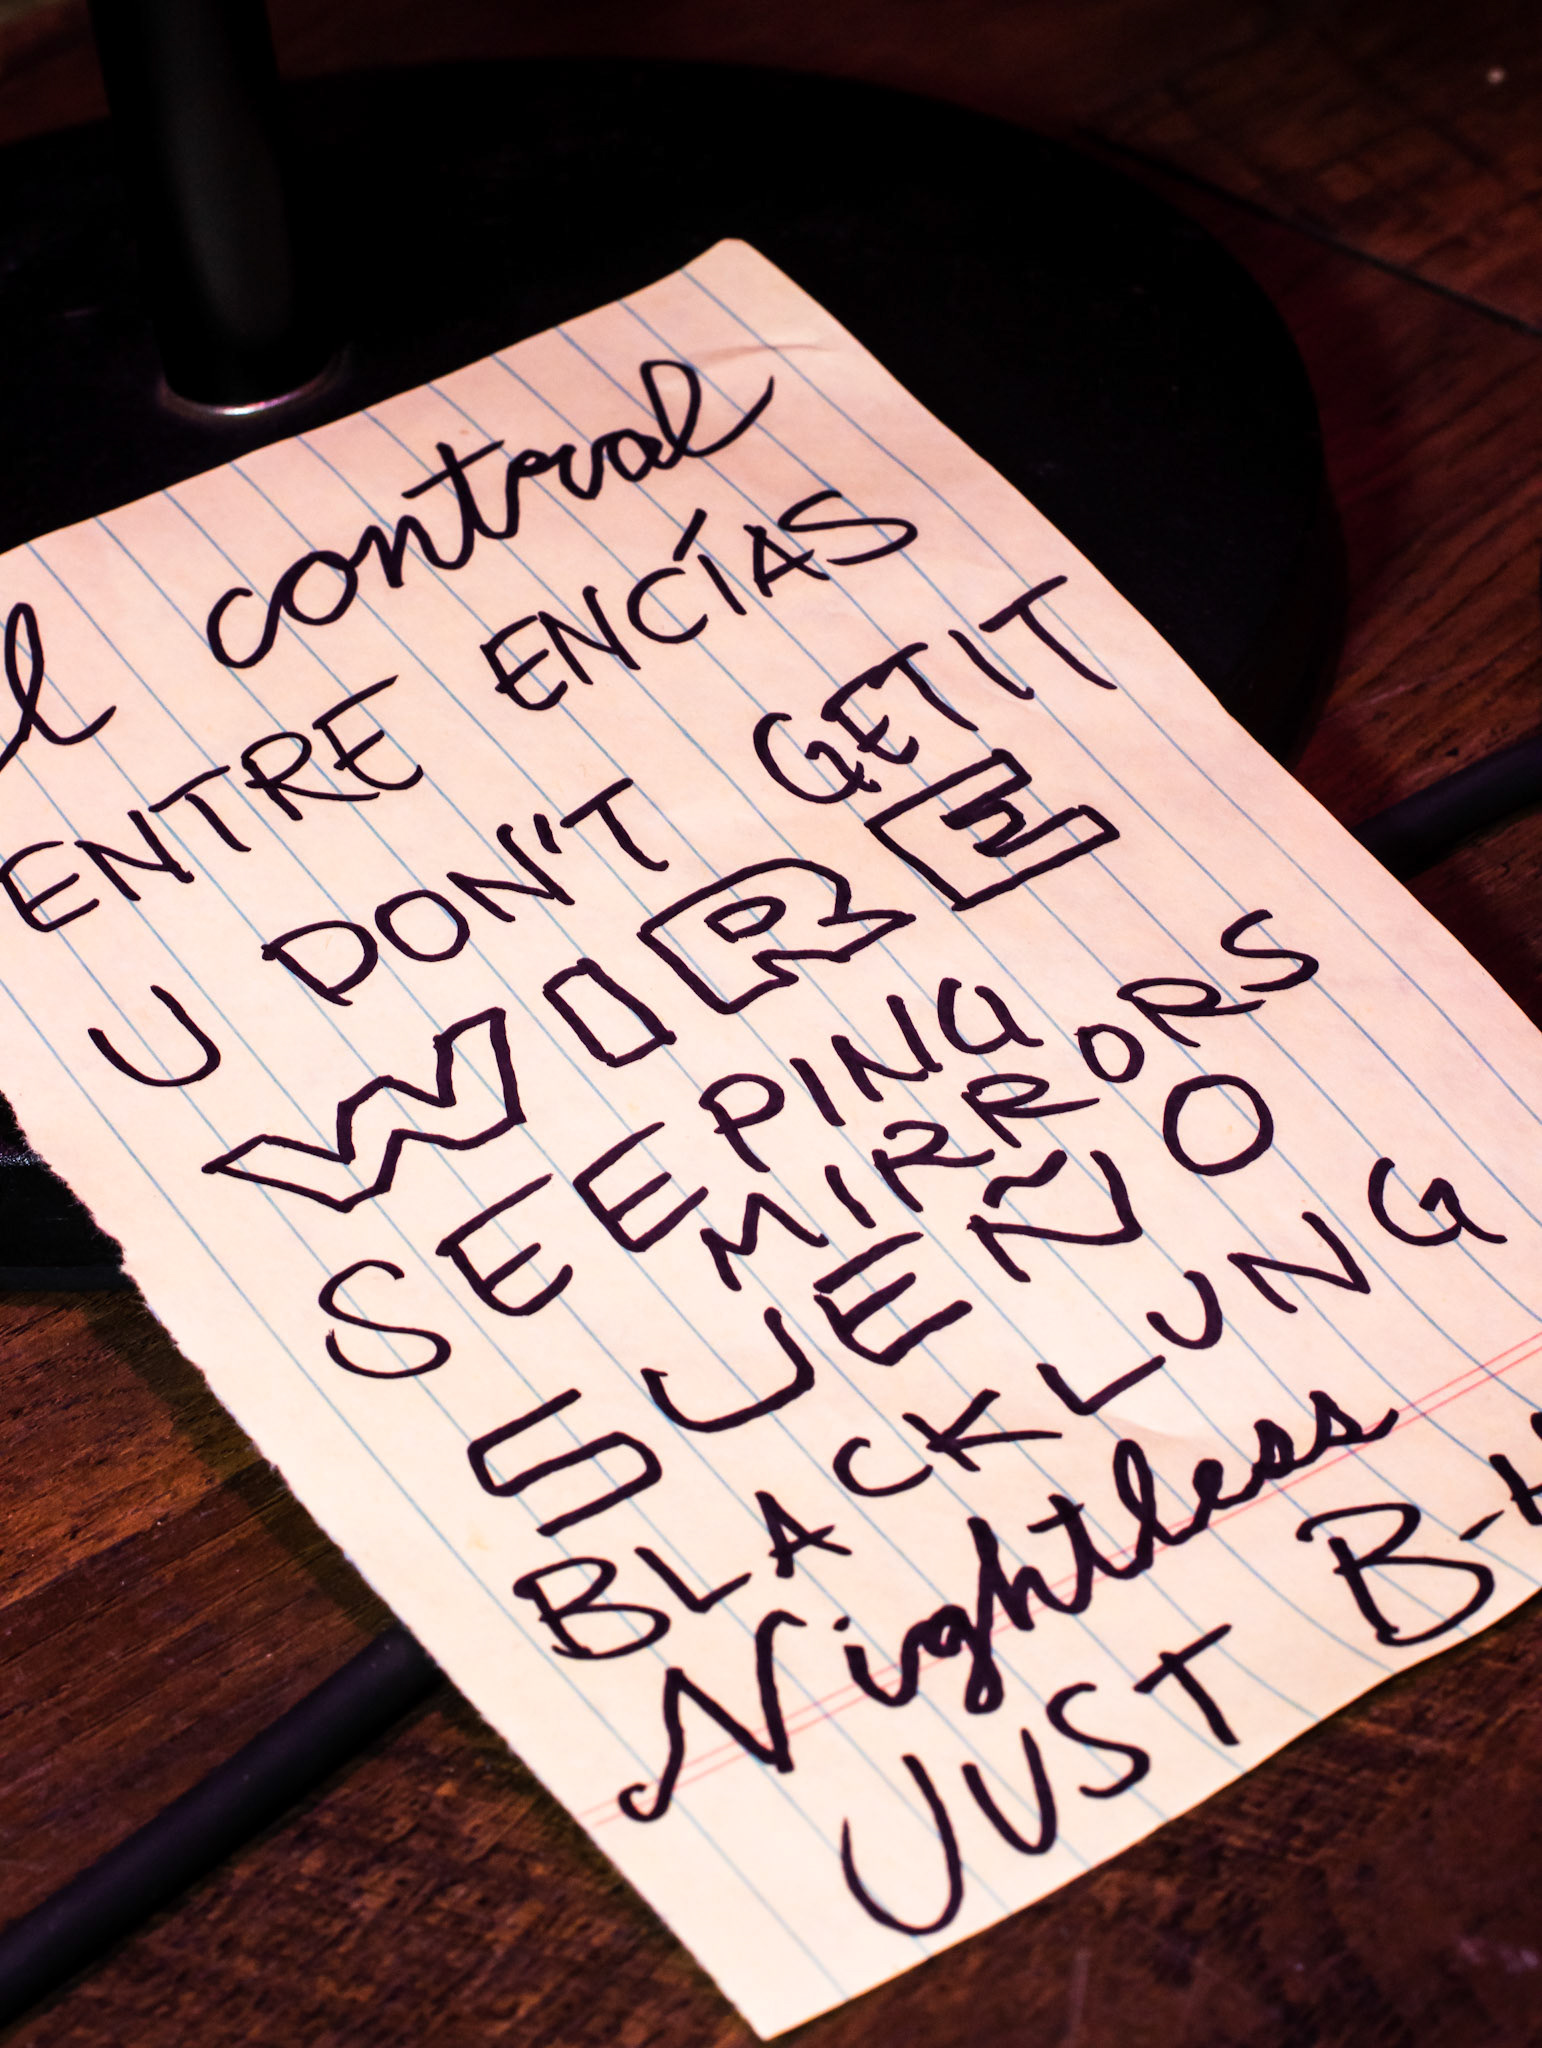 l control
ENTRE ENCÍAS
U DON'T GET IT
WIRE
SEEPING
MIRRORS
SUEÑO
BLACK LUNG
Nightless
JUST B-